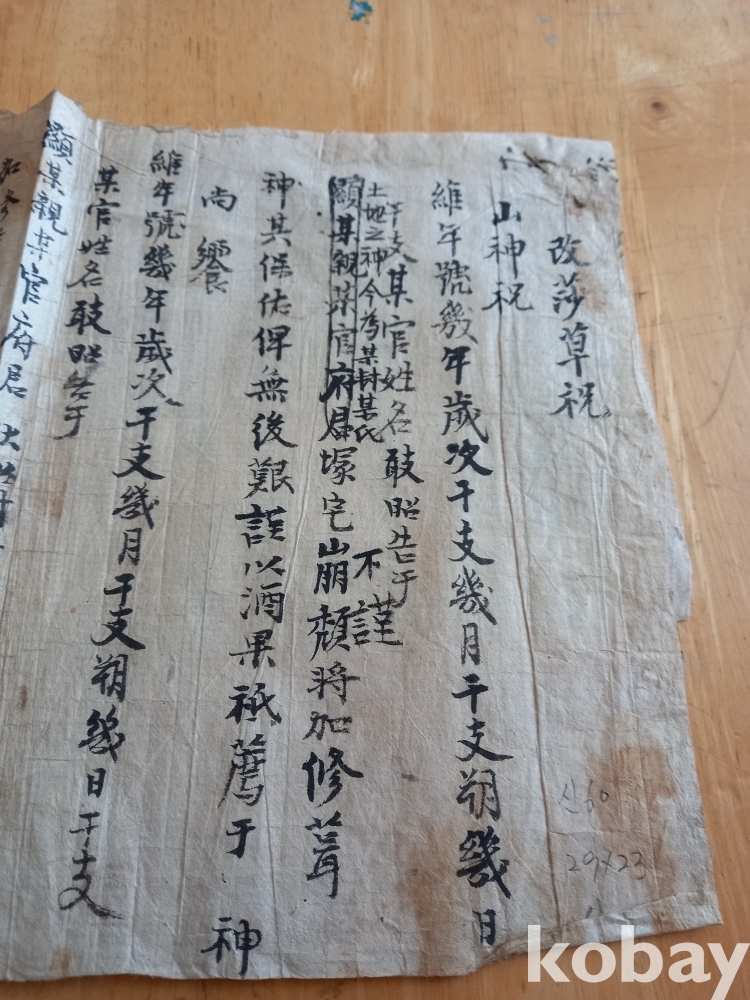 改莎草祝
山神祝
維年號幾年歲次干支幾月干支朔幾日
干支某官姓名敢昭告于
土地之神今為某封某氏
顯某親某官府君塚宅崩頹將加修葺
不謹
神其保佑俾無後艱謹以酒果祗薦于神
尚饗
維年號幾年歲次干支幾月干支朔幾日干支
某官姓名敢昭告于
顯某親某官府君
신60
29×23
kobay